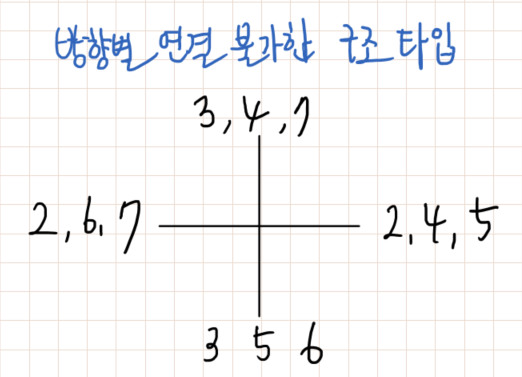 방향별 연결 불가한 구조 타입
3, 4, 7
2, 6, 7
2, 4, 5
3 5 6